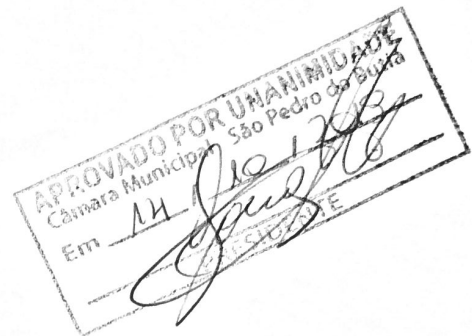 APROVADO POR UNANIMIDADE
Câmara Municipal São Pedro do Butiá
Em 14 / 10 / 2013
PRESIDENTE